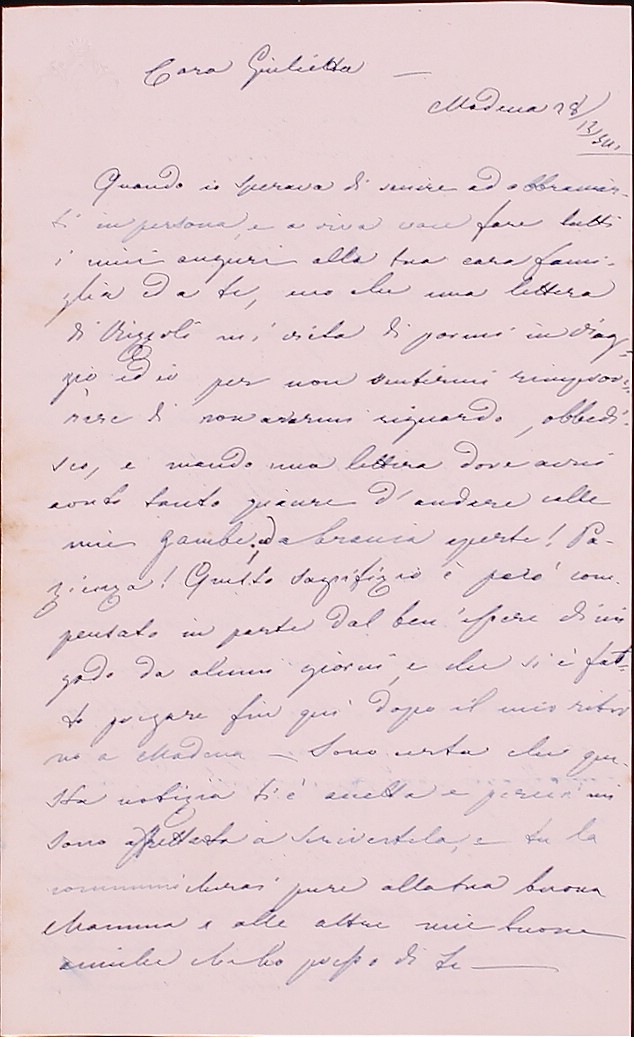 Cara Giulietta —
Modena 28/
Quando io sperava di venire ad abbracciar-
ti in persona, e a viva voce fare tutti
i miei auguri alla tua cara fami-
glia e da te, ecco che una lettera
di Rizzoli mi vieta di pormi in viag-
gio ed io per non sentirmi rimprove-
rare di non avermi riguardo, obbedi-
sco, e mando una lettera dove avrei
avuto tanto piacere d'andare colle
mie gambe, ed a braccia aperte! Pa-
zienza! Questo sagrifizio è però com-
pensato in parte dal ben'essere di cui
godo da alcuni giorni, e che si è fat-
to pregare fin qui dopo il mio ritor
no a Modena — Sono certa che que-
sta notizia ti è accetta e perciò mi
sono affrettata a scrivertela, e tu la
communicherai pure alla tua buona
Mamma e alle altre mie buone
amiche che ho presso di te —